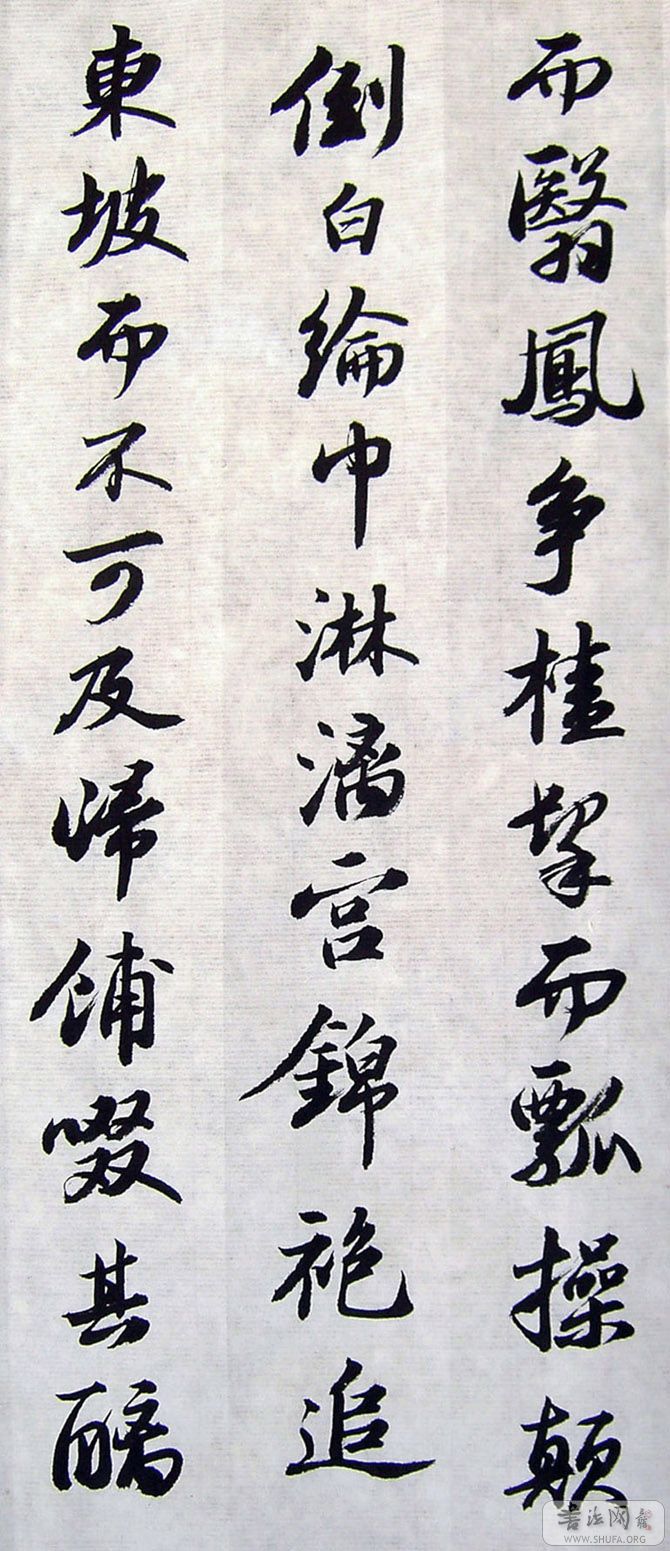 而翳鳳争榼挈而瓢操顛
倒白綸巾淋漓宫錦袍追
東坡而不可及歸餔啜其醨
書法网
WWW.SHUFA.ORG